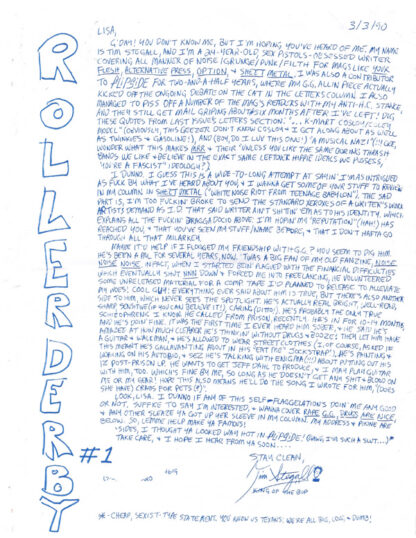 ROLLERDERBY
#1
3/3/90
LISA,
G'DAY! YOU DON'T KNOW ME, BUT I'M HOPING YOU'VE HEARD OF ME. MY NAME
IS TIM STEGALL, AND I'M A 24-YEAR-OLD, SEX PISTOLS-OBSESSED WRITER
COVERING ALL MANNER OF NOISE (GRUNGE/PUNK/FILTH FOR MAGS LIKE YOUR
FLESH, ALTERNATIVE PRESS, OPTION, & SHEET METAL. I WAS ALSO A CONTRIBUTOR
TO FLIPSIDE FOR TWO-AND-A-HALF YEARS, WHERE MY G.G. ALLIN PIECE ACTUALLY
KICKED OFF THE ONGOING DEBATE ON THE CAT IN THE LETTERS COLUMN. I ALSO
MANAGED TO PISS OFF A NUMBER OF THE MAG'S READERS WITH MY ANTI-H.C. STANCE,
AND THEY STILL GET MAIL GRIPING ABOUT SIX MONTHS AFTER I'VE LEFT! DIG
THESE QUOTES FROM LAST ISSUE'S LETTERS SECTION:
(OBVIOUSLY, THIS GEEZER DON'T KNOW COSLOY & I GET ALONG ABOUT AS WELL
AS TWINKIES & GASOLINE!), AND (BOY, DO I LUV THIS ONE!) "A MUSICAL NAZI"(!!! GEE,
WONDER WHAT THIS MAKES MRR & THEIR "UNLESS YOU LIKE THE SAME DUMB THRASH
BANDS WE LIKE & BELIEVE IN THE EXACT SAME LEFTOVER HIPPIE IDEALS WE POSSESS,
YOU'RE A FASCIST" IDEOLOGY?)
I DUNNO. I GUESS THIS IS A WIDE-TO-LONG ATTEMPT AT SAYIN' I WAS INTRIGUED
AS FUCK BY WHAT I'VE HEARD ABOUT YOU, & I WANNA GET SOME OF YOUR STUFF TO REVIEW
IN MY COLUMN IN SHEET METAL ("WHITE NOISE RIOT FROM TEENAGE BABYLON"). THE SAD
PART IS, I'M TOO FUCKIN' BROKE TO SEND THE STANDARD XEROXES OF A WRITER'S WORK
ARTISTS DEMAND AS I.D. THAT SAID WRITER AIN'T SHITTIN' 'EM AS TO HIS IDENTITY. WHICH
EXPLAINS ALL THE FUCKIN' BRAGGADOCIO ABOVE. I'M HOPIN' MY "REPUTATION" (HAH!) HAS
REACHED YOU, & THAT YOU'VE SEEN MY STUFF/NAME BEFORE, & THAT I DON'T HAFTA GO
THROUGH ALL THAT MALARKEY.
MAYBE IT'LL HELP IF I FLOGGED MY FRIENDSHIP WITH G.G.? YOU SEEM TO DIG HIM.
HE'S BEEN A PAL FOR SEVERAL YEARS NOW. 'TWAS A BIG FAN OF MY OLD FANZINE, NOISE
NOISE NOISE. IN FACT, WHEN I STARTED BEIN' PLAGUED WITH THE FINANCIAL DIFFICULTIES
WHICH EVENTUALLY SHUT NNN DOWN & FORCED ME INTO FREELANCING, HE VOLUNTEERED
SOME UNRELEASED MATERIAL FOR A COMP TAPE I'D PLANNED TO RELEASE TO ALLEVIATE
MY WOES! COOL GUY! EVERYTHING EVER SAID ABOUT HIM IS TRUE, BUT THERE'S ALSO ANOTHER
SIDE TO HIM, WHICH NEVER SEES THE SPOTLIGHT. HE'S ACTUALLY REAL BRIGHT, WELL-READ,
SHARP, SENSITIVE (IF YOU CAN BELIEVE IT!), CARING (DITTO). HE'S PROBABLY THE ONLY TRUE
SCHIZOPHRENIC I KNOW. HE CALLED FROM PRISON, RECENTLY. HE'S IN FOR 10-14 MONTHS,
AND HE'S DOIN' FINE. IT WAS THE FIRST TIME I EVER HEARD HIM SOBER, & HE SAID HE'S
AMAZED AT HOW MUCH CLEARER HE'S THINKIN' WITHOUT DRUGS & BOOZE! THEY LET HIM HAVE
A GUITAR & WALKMAN, & HE'S ALLOWED TO WEAR STREET CLOTHES (I, OF COURSE, ASKED IF
THIS MEANT HE'S GALLAVANTING ABOUT IN HIS "EAT ME" JOCKSTRAP!). HE'S PAINTING &
WORKING ON HIS AUTOBIO, & SEZ HE'S TALKING WITH ENIGMA(!!!) ABOUT PUTTING OUT HIS
1ST POST-PRISON LP. HE WANTS TO GET JEFF DAHL TO PRODUCE, & I MAY PLAY GUITAR
WITH HIM, TOO. WHICH'S FINE BY ME, SO LONG AS HE DOESN'T GET ANY SHIT & BLOOD ON
ME OR MY GEAR! HOPE THIS ALSO MEANS HE'LL DO THE SONG I WROTE FOR HIM, "(DOES
SHE HAVE) CRABS FOR PETS (?)".
LOOK, LISA. I DUNNO IF ANY OF THIS SELF-FLAGELLATION'S DOIN' ME ANY GOOD
OR NOT. SUFFICE TO SAY I'M INTERESTED, & WANNA COVER RAPE G.G., DRUGS ARE NICE,
& ANY OTHER SLEAZE YA GOT UP YER SLEEVE IN MY COLUMN. MY ADDRESS & PHONE ARE
BELOW. SO, LEMME HELP MAKE YA FAMOUS!
'SIDES, I THOUGHT YA LOOKED WAY HOT IN FLIPSIDE! (DAMN, I'M SUCH A SLUT...)*
TAKE CARE, & I HOPE I HEAR FROM YA SOON....
STAY CLEAN,
Tim Stegall
KING OF THE
*A-CHEAP, SEXIST-TYPE STATEMENT. YOU KNOW US TEXANS. WE'RE ALL BIG, LOUD, & DUMB!